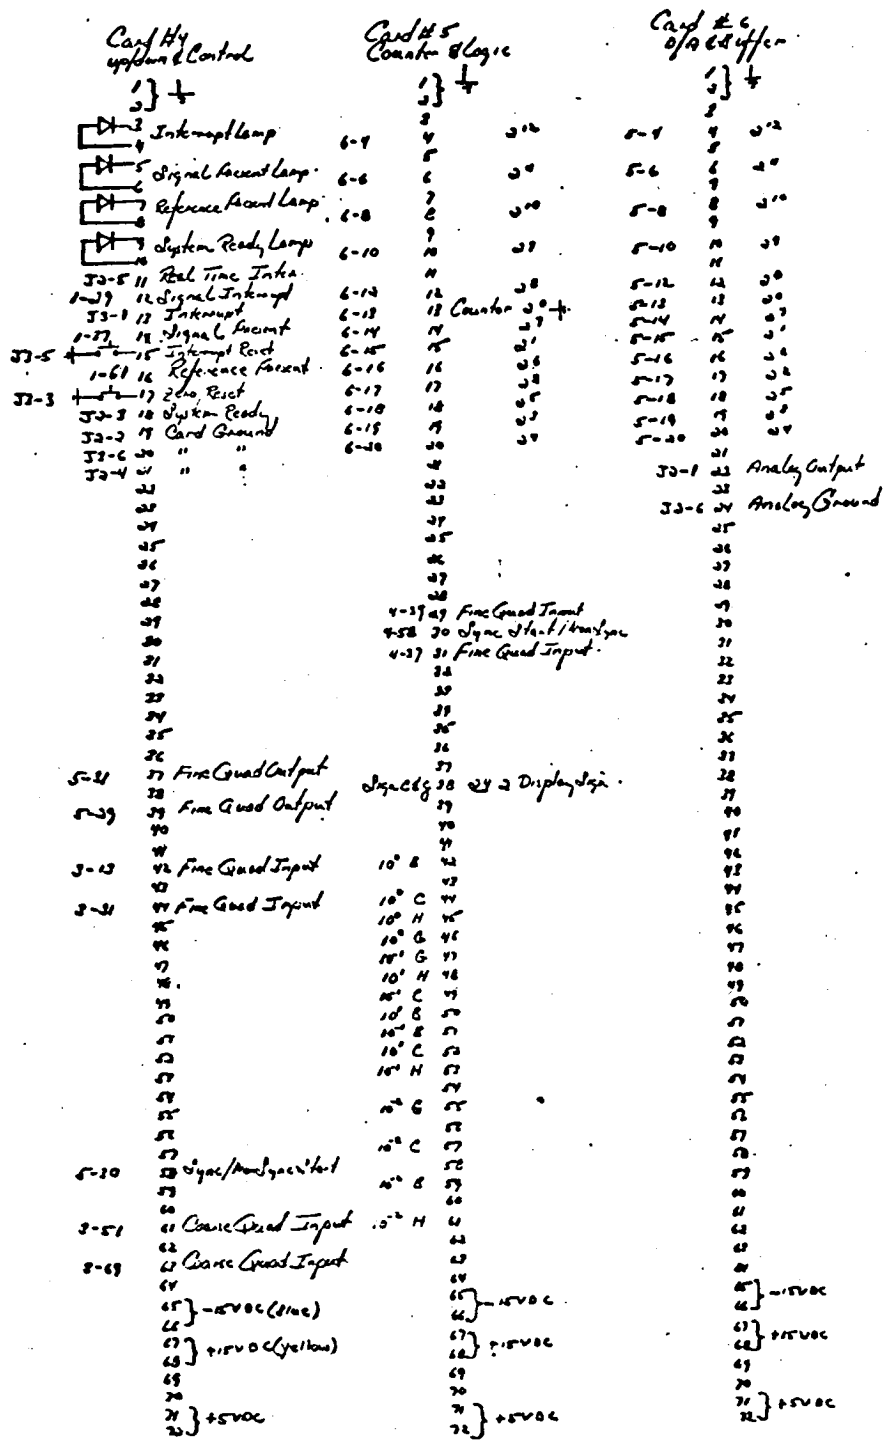 Card #4
up/down & Control
1
2
3 Interrupt Lamp
4
5 Signal Present Lamp
6
7 Reference Present Lamp
8
9 System Ready Lamp
10
J2-5 11 Real Time Inter.
1-29 12 Signal Interrupt
J3-1 13 Interrupt
1-37 14 Signal Present
J3-5 15 Interrupt Reset
1-61 16 Reference Present
J3-3 17 Zero, Reset
J2-3 18 System Ready
J2-2 19 Card Ground
J3-6 20 " "
J2-4 21 " "
22
23
24
25
26
27
28
29
30
31
32
33
34
35
36
5-31 37 Fine Quad Output
38
5-29 39 Fine Quad Output
40
41
3-13 42 Fine Quad Input
43
3-31 44 Fine Quad Input
45
46
47
48
49
50
51
52
53
54
55
56
57
5-30 58 Sync/NonSync Start
59
60
3-51 61 Coarse Quad Input
62
3-69 63 Coarse Quad Input
64
65 -15VDC (blue)
66
67 +15VDC (yellow)
68
69
70
71 +5VDC
72
Card #5
Counter & Logic
1
2
3
6-4 4 2¹²
5
6-6 6 2¹¹
7
6-8 8 2¹⁰
9
6-10 10 2⁹
11
6-12 12 2⁸
6-13 13 Counter 2⁰
6-14 14 2⁷
6-15 15 2¹
6-16 16 2⁶
6-17 17 2²
6-18 18 2⁵
6-19 19 2³
6-20 20 2⁴
21
22
23
24
25
26
27
28
4-39 29 Fine Quad Input
4-58 30 Sync Start/NonSync
4-37 31 Fine Quad Input
32
33
34
35
36
37
38 Display Sign
39
40
41
10⁰ B 42
43
10⁰ C 44
10⁰ H 45
10⁰ G 46
10¹ G 47
10¹ H 48
10¹ C 49
10¹ B 50
B 51
C 52
H 53
54
10⁻² G 55
56
10⁻² C 57
58
10⁻² B 59
60
10⁻² H 61
62
63
64
65 -15VDC
66
67 +15VDC
68
69
70
71 +5VDC
72
Card #6
D/A & Buffer
1
2
3
5-4 4 2¹²
5
5-6 6 2¹¹
7
5-8 8 2¹⁰
9
5-10 10 2⁹
11
5-12 12 2⁸
5-13 13 2⁰
5-14 14 2⁷
5-15 15 2¹
5-16 16 2⁶
5-17 17 2²
5-18 18 2⁵
5-19 19 2³
5-20 20 2⁴
21
J2-1 22 Analog Output
23
J2-6 24 Analog Ground
25
26
27
28
29
30
31
32
33
34
35
36
37
38
39
40
41
42
43
44
45
46
47
48
49
50
51
52
53
54
55
56
57
58
59
60
61
62
63
64
65 -15VDC
66
67 +15VDC
68
69
70
71 +5VDC
72